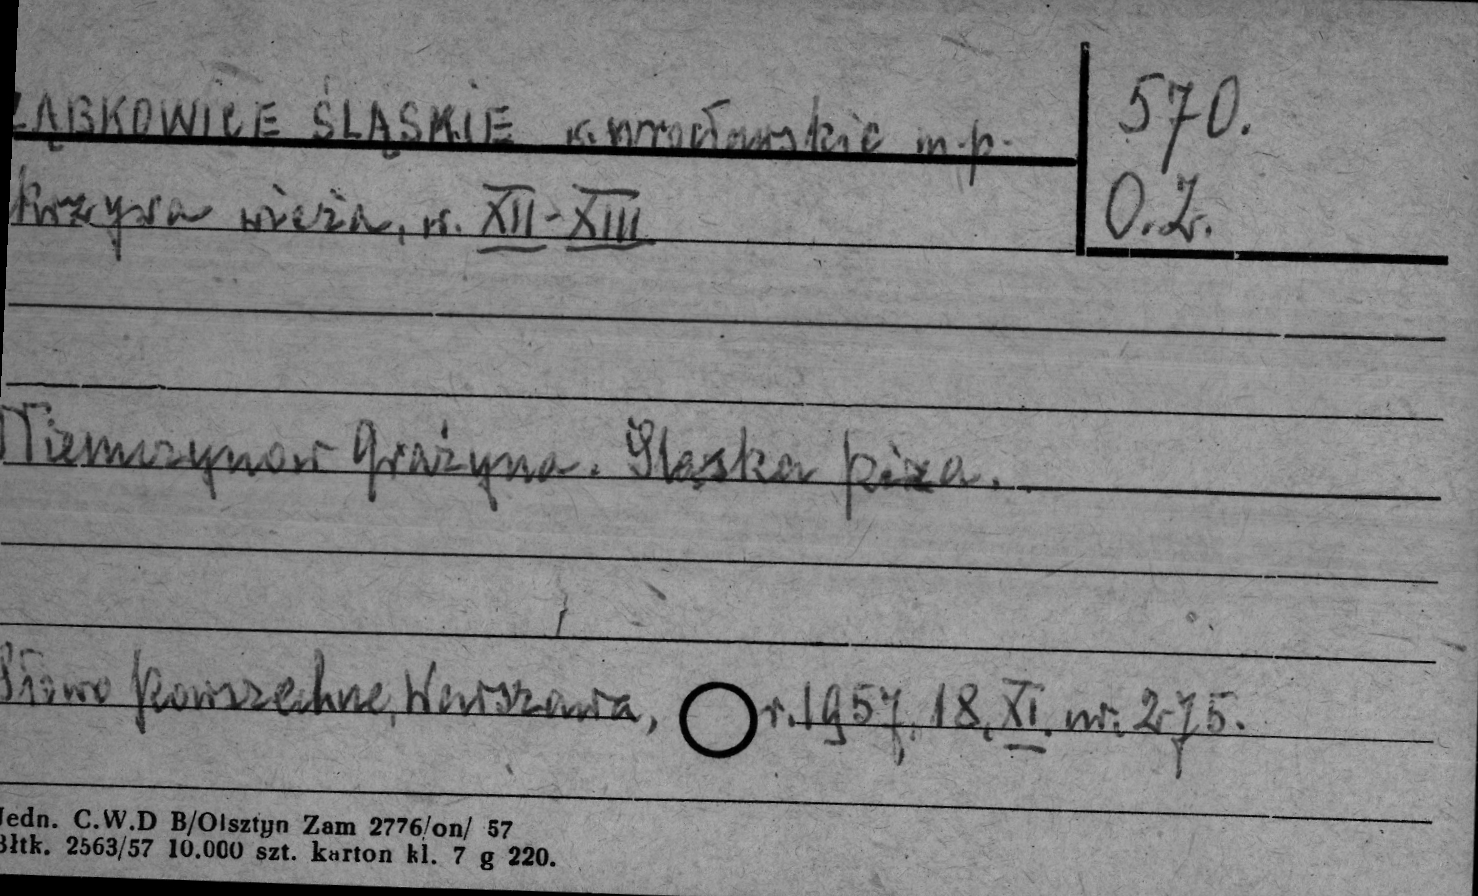 ZĄBKOWICE ŚLĄSKIE w. wrocławskie m.p.
570.
krzywa wieża, w. XII-XIII
O.Z.
Niemczynow Grażyna. Śląska piza.
Słowo Powszechne, Warszawa, r. 1957, 18. XI. nr. 275.
Jedn. C.W.D B/Olsztyn Zam 2776/on/ 57
Błtk. 2563/57 10.000 szt. karton kl. 7 g 220.